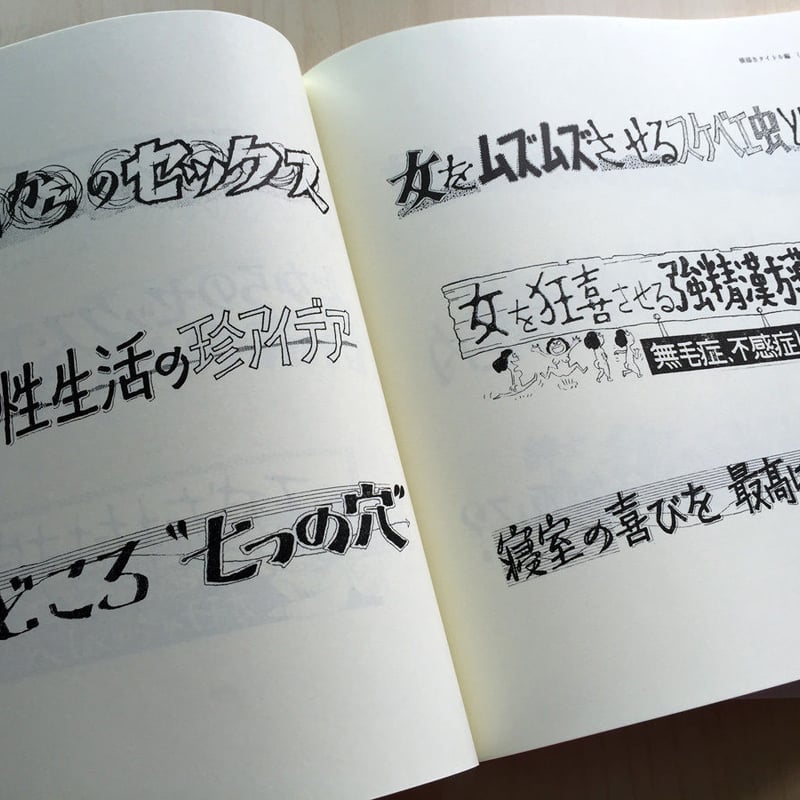 からのセックス
性生活の珍アイデア
どころ"七つの穴"
タイトル編
女をムズムズさせるスケベエ虫と
女を狂喜させる強精漢方
無毛症、不感症
寝室の喜びを 最高に